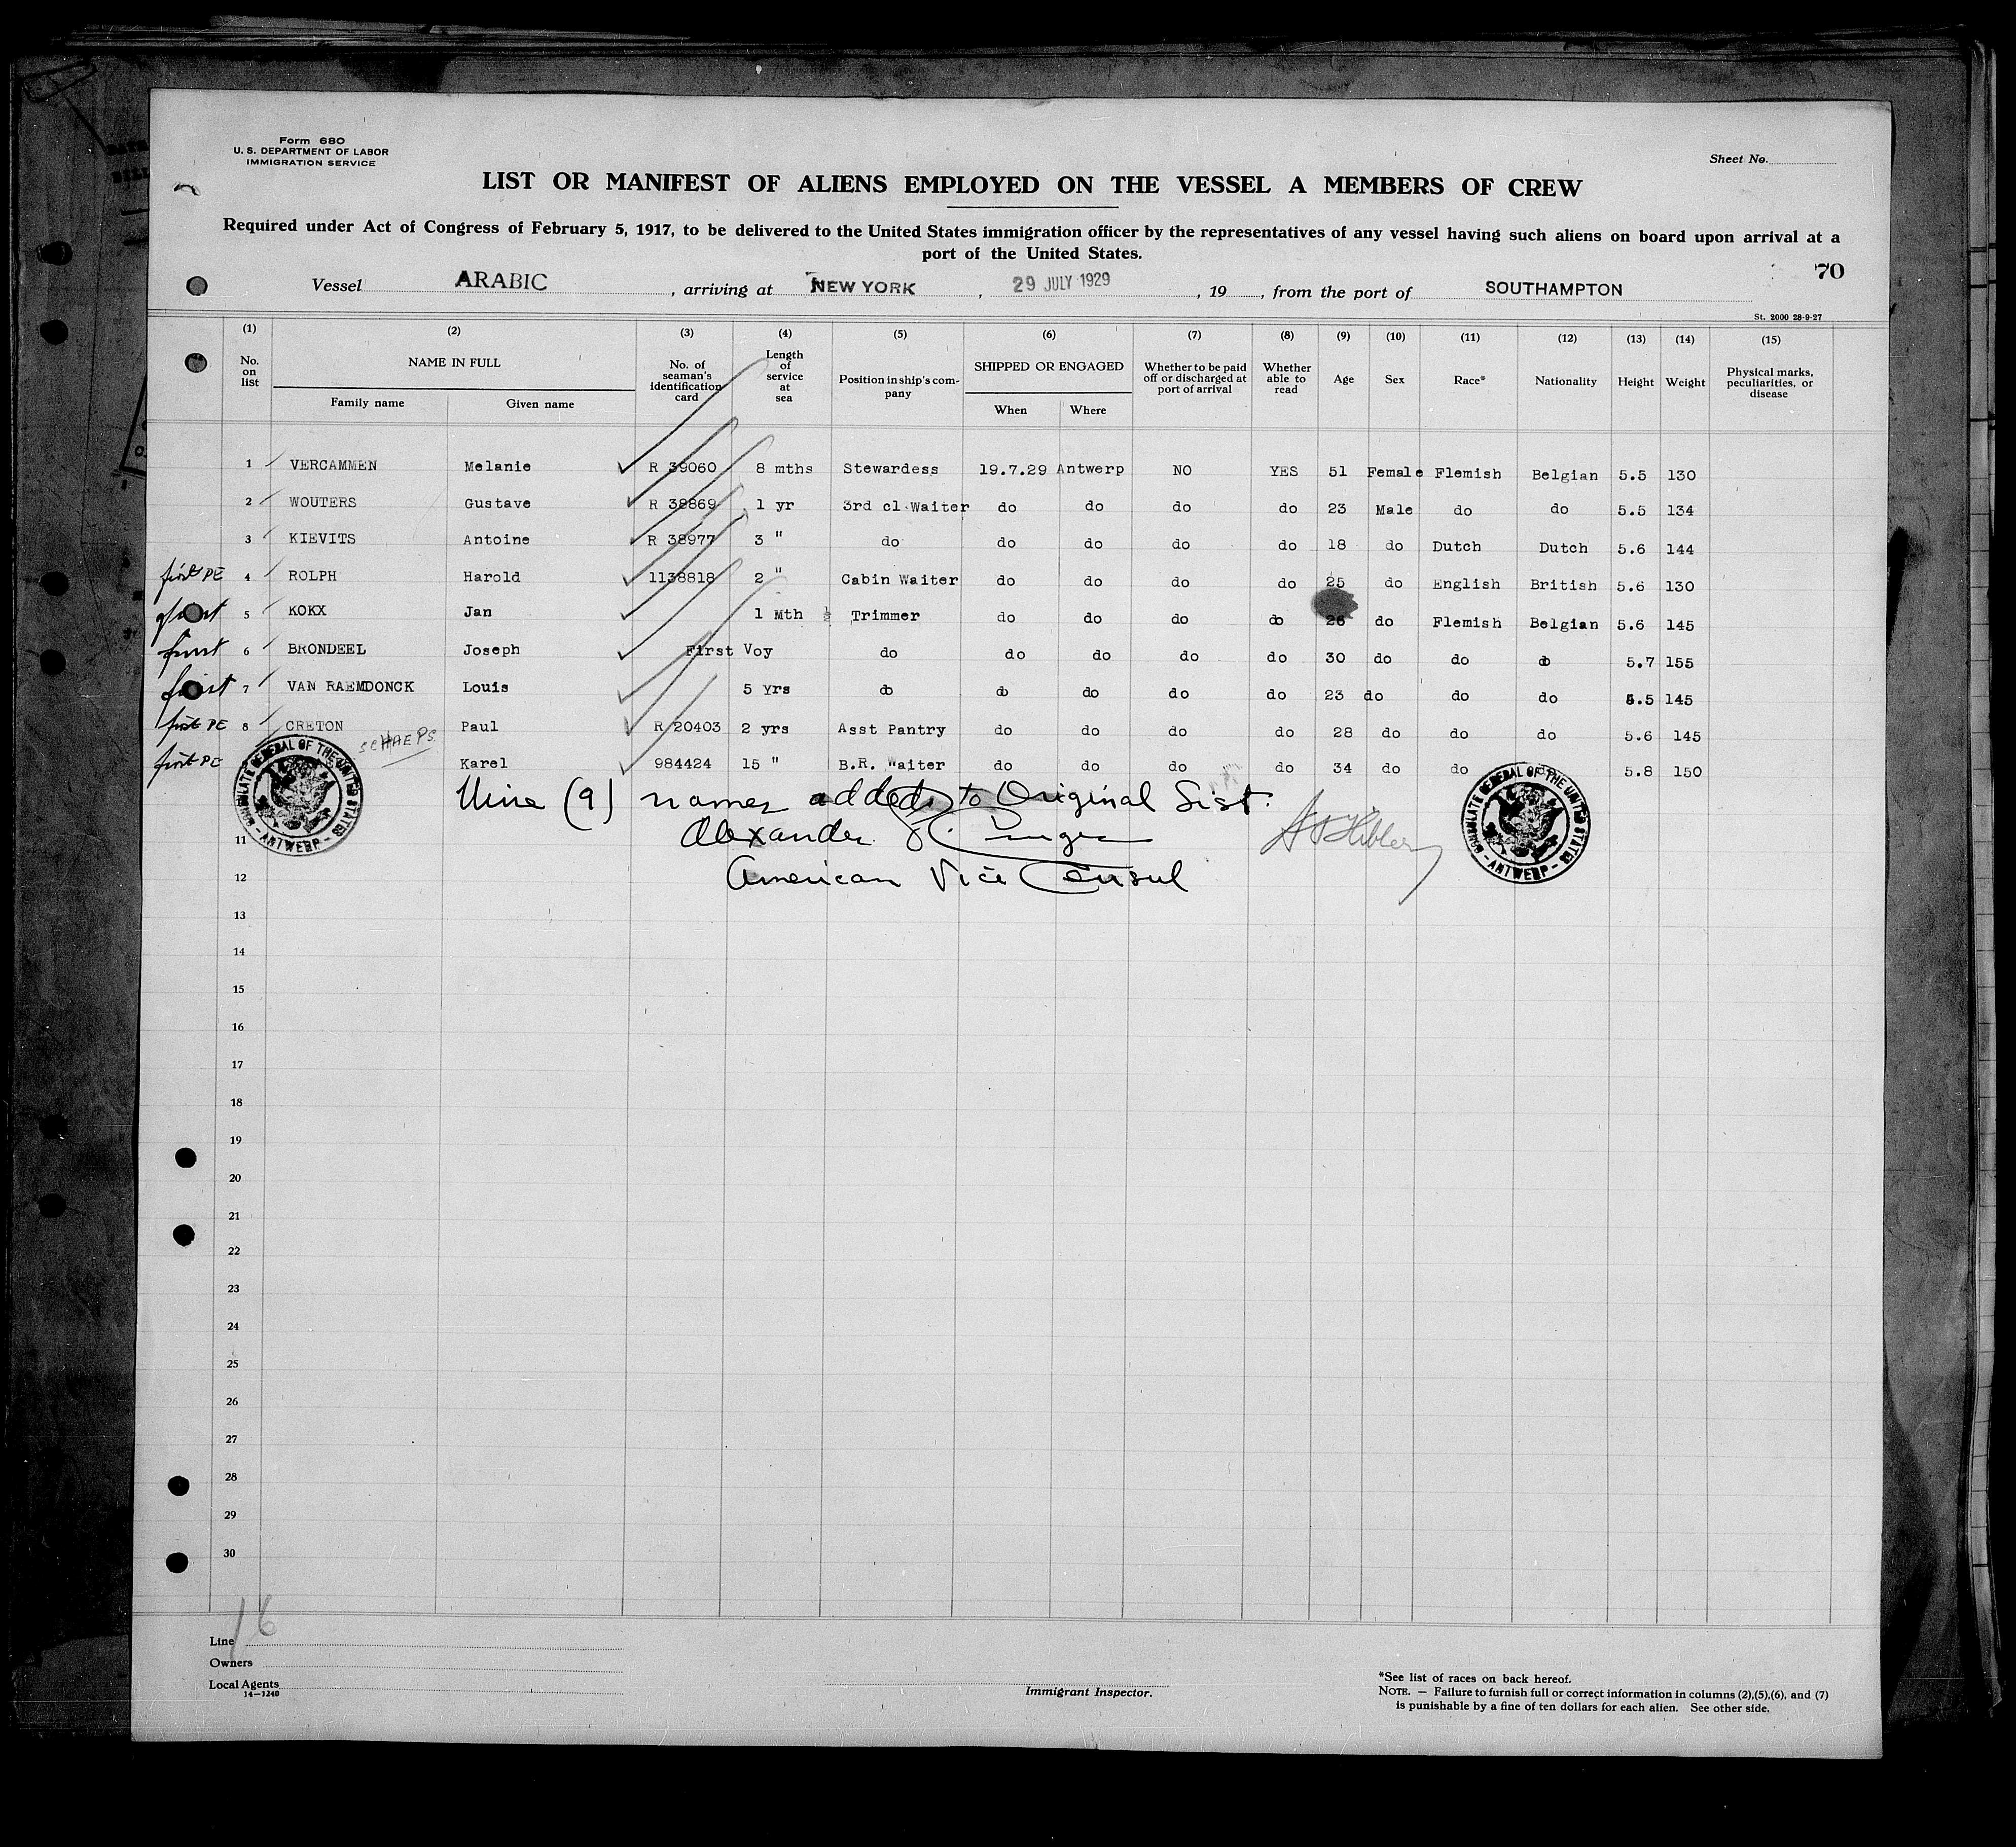 Form 680
U. S. DEPARTMENT OF LABOR
IMMIGRATION SERVICE
Sheet No.
LIST OR MANIFEST OF ALIENS EMPLOYED ON THE VESSEL A MEMBERS OF CREW
Required under Act of Congress of February 5, 1917, to be delivered to the United States immigration officer by the representatives of any vessel having such aliens on board upon arrival at a
port of the United States.
70
Vessel ARABIC, arriving at NEW YORK, 29 JULY 1929, 19, from the port of SOUTHAMPTON
St. 2000 28-9-27
(1) (2) (3) (4) (5) (6) (7) (8) (9) (10) (11) (12) (13) (14) (15)
No. on list NAME IN FULL Family name Given name No. of seaman's identification card Length of service at sea Position in ship's company SHIPPED OR ENGAGED When Where Whether to be paid off or discharged at port of arrival Whether able to read Age Sex Race* Nationality Height Weight Physical marks, peculiarities, or disease
1 VERCAMMEN Melanie R 39060 8 mths Stewardess 19.7.29 Antwerp NO YES 51 Female Flemish Belgian 5.5 130
2 WOUTERS Gustave R 38869 1 yr 3rd cl Waiter do do do do 23 Male do do 5.5 134
3 KIEVITS Antoine R 38977 3 " do do do do do 18 do Dutch Dutch 5.6 144
first PE 4 ROLPH Harold 1138818 2 " Cabin Waiter do do do do 25 do English British 5.6 130
first 5 KOKX Jan 1 Mth Trimmer do do do do 26 do Flemish Belgian 5.6 145
first 6 BRONDEEL Joseph First Voy do do do do do 30 do do do 5.7 155
first 7 VAN RAEMDONCK Louis 5 Yrs do do do do do 23 do do do 5.5 145
first PE 8 CRETON Paul R 20403 2 yrs Asst Pantry do do do do 28 do do do 5.6 145
first PE SCHAEPS Karel 984424 15 " B.R. Waiter do do do do 34 do do 5.8 150
CONSULATE GENERAL OF THE UNITED STATES - ANTWERP -
Nine (9) names added to Original List.
Alexander
American Vice Consul
CONSULATE GENERAL OF THE UNITED STATES - ANTWERP -
11
12
13
14
15
16
17
18
19
20
21
22
23
24
25
26
27
28
29
30
16
Line
Owners
Local Agents
14-1240
Immigrant Inspector.
*See list of races on back hereof.
NOTE. — Failure to furnish full or correct information in columns (2),(5),(6), and (7)
is punishable by a fine of ten dollars for each alien. See other side.